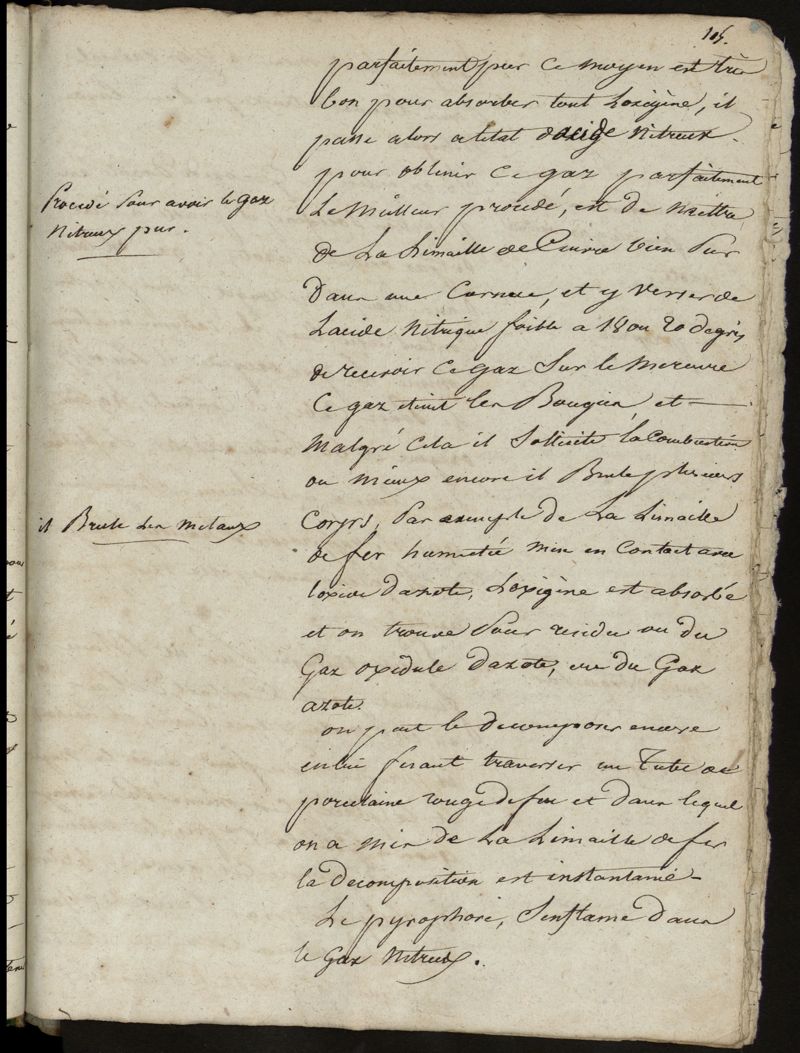 105.
parfaitement pur ce moyen est très
bon pour absorber tout Loxigène, il
passe alors a letat d'acide Nitreux.
pour obtenir ce gaz parfaitement
Procédé Pour avoir le gaz
Nitreux pur.
Le Meilleur procédé, est de Mettre
de La Limaille de Cuivre bien Pur
Dans une Cornue, et y Verser de
Lacide Nitrique foible a 18 ou 20 degrés
de recevoir ce gaz Sur le Mercure
Ce gaz eteint les Bougies, et —
Malgré Cela il Sollicite la Combustion
ou Mieux encore il Brule plusieurs
il Brule Les Metaux
Corps, Par exemple de La Limaille
de fer humectée Mise en Contact avec
loxide Dazote, Loxigène est absorbée
et on trouve Pour residu ou du
Gaz oxidule Dazote, ou du Gaz
azote.
on peut le decomposer encore
en lui fesant traverser un Tube de
porcelaine rougi de feu et dans lequel
on a Mis de La Limaille de fer
la Decomposition est instantané —
Le pyrophore, Senflame Dans
le Gaz Nitreux.